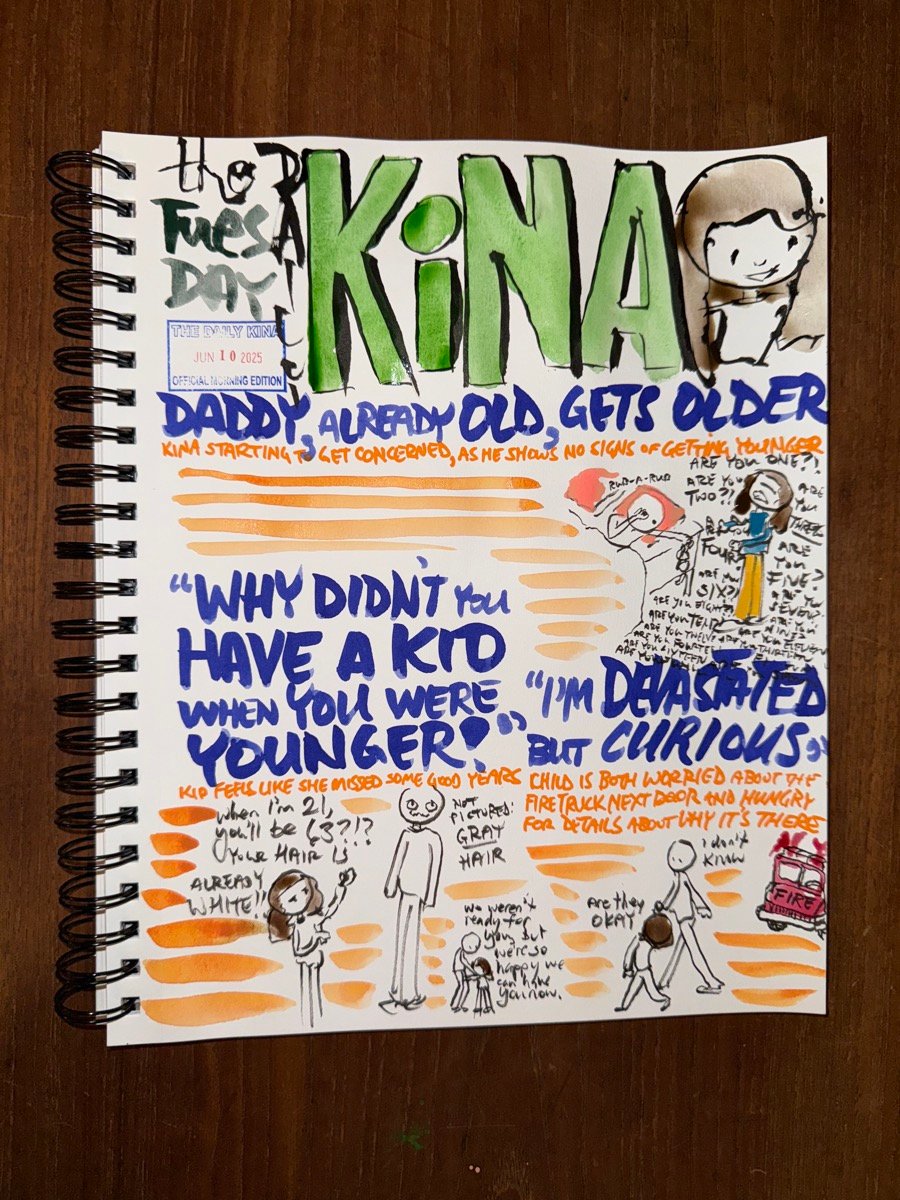 the DAILY KiNA
TuesDAY
THE DAILY KINA
JUN 10 2025
OFFICIAL MORNING EDITION
DADDY, ALREADY OLD, GETS OLDER
KINA STARTING TO GET CONCERNED, AS HE SHOWS NO SIGNS OF GETTING YOUNGER
RUB-A-RUB
ARE YOU ONE?!
ARE YOU TWO?!
ARE YOU THREE
ARE YOU FOUR
ARE YOU FIVE?
ARE YOU SIX?!
ARE YOU SEVEN?
ARE YOU EIGHT?!
ARE YOU NINE?!
ARE YOU TEN?
ARE YOU ELEVEN
ARE YOU TWELVE
ARE YOU THIRTEEN
ARE YOU FOURTEEN
ARE YOU SIXTEEN
"WHY DIDN'T YOU
HAVE A KID
WHEN YOU WERE
YOUNGER?"
KID FEELS LIKE SHE MISSED SOME GOOD YEARS
When I'm 21,
you'll be 63?!?
YOUR HAIR IS
ALREADY
WHITE!!
NOT
PICTURED:
GRAY
HAIR
We weren't
ready for
you, but
we're so
happy we
can have
you now.
"I'M DEVASTATED
BUT CURIOUS"
CHILD IS BOTH WORRIED ABOUT THE
FIRETRUCK NEXT DOOR AND HUNGRY
FOR DETAILS ABOUT WHY IT'S THERE
Are they
OKAY
I don't
KNOW
FIRE